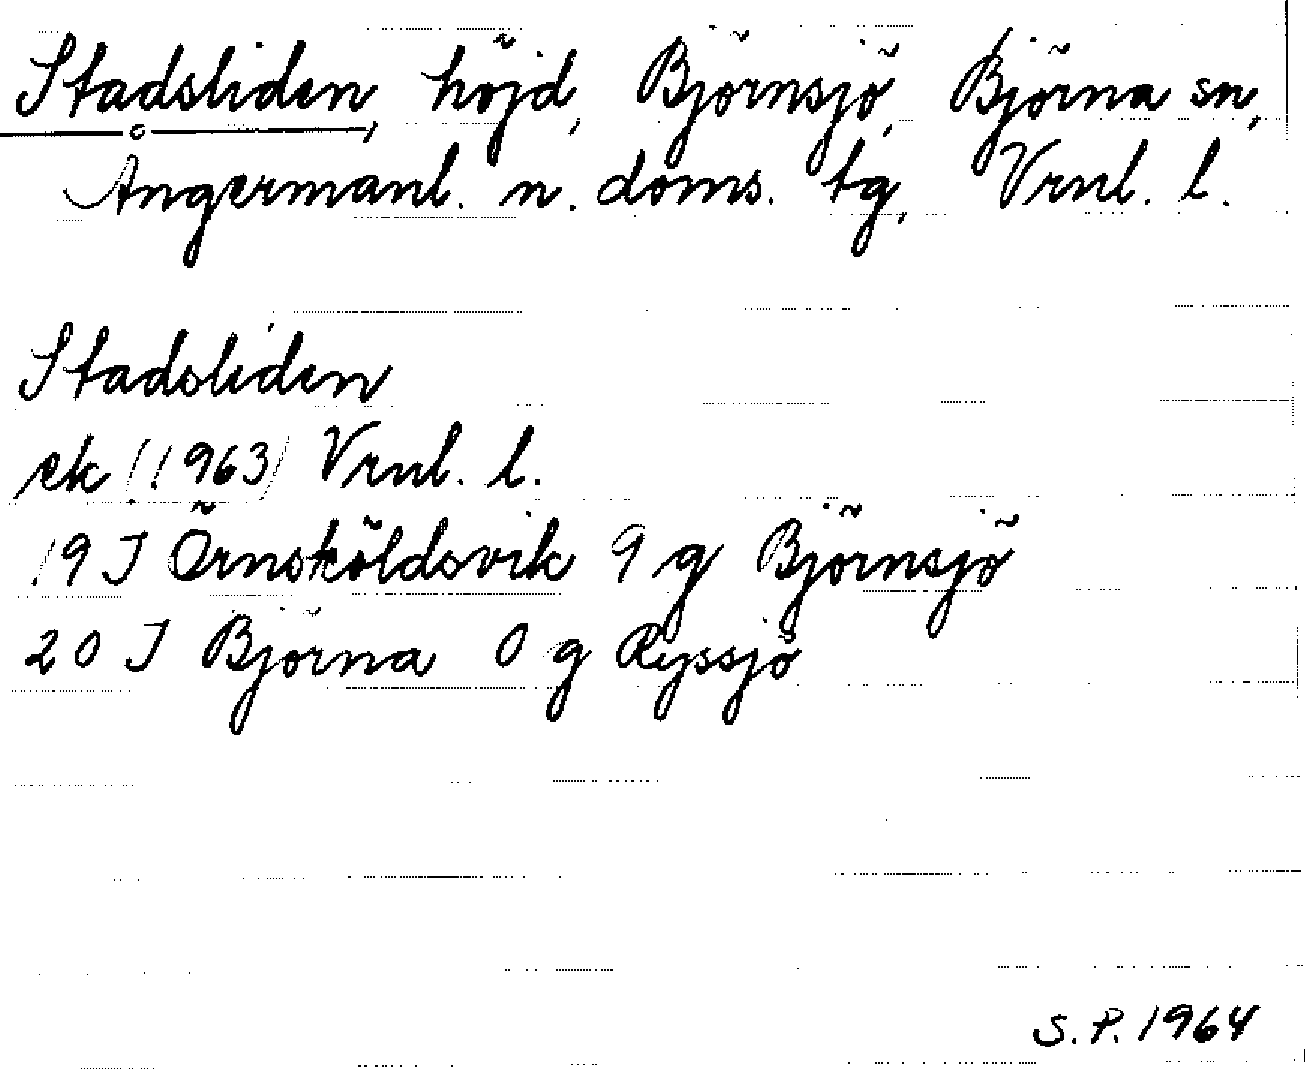 Stadsliden, höjd, Björnsjö, Björna sn,
Ångermanl. n. doms. tg, Vrnl. l.
Stadsliden
ek (1963) Vrnl. l.
19 J Örnsköldsvik 9 g Björnsjö
20 J Björna 0 g Ryssjö
S.P. 1964